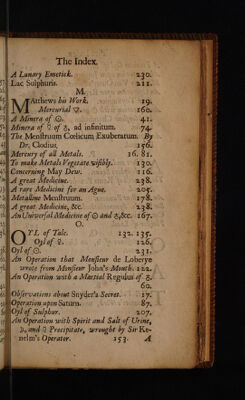 The Index.
A Lunary Emetick. 230.
Lac Sulphuris. 211.
M.
Matthews his Work. 19.
Mercurial ♀. 160.
A Minera of ☉. 41.
Minera of ☿ of ♂, ad infinitum. 74.
The Menstruum Cœlicum Exuberatum. By
Dr. Clodius. 156.
Mercury of all Metals. 16. 81.
To make Metals Vegetate visibly. 130.
Concerning May Dew. 116.
A great Medicine. 238.
A rare Medicine for an Ague. 205.
Metalline Menstruum. 178.
A great Medicine, &c. 238.
An Universal Medicine of ☉ and ♁, &c. 167.
O.
OYL of Talc. 132. 135.
Oyl of ☿. 126.
Oyl of ☉. 231.
An Operation that Monsieur de Loberye
wrote from Monsieur John's Mouth. 122.
An Operation with a Martial Regulus of
60.
Observations about Snyder's Secret. 17.
Operation upon Saturn. 87.
Oyl of Sulphur. 207.
An Operation with Spirit and Salt of Urine,
and ☿ Precipitate, wrought by Sir Ke-
nelm's Operator. 153. A